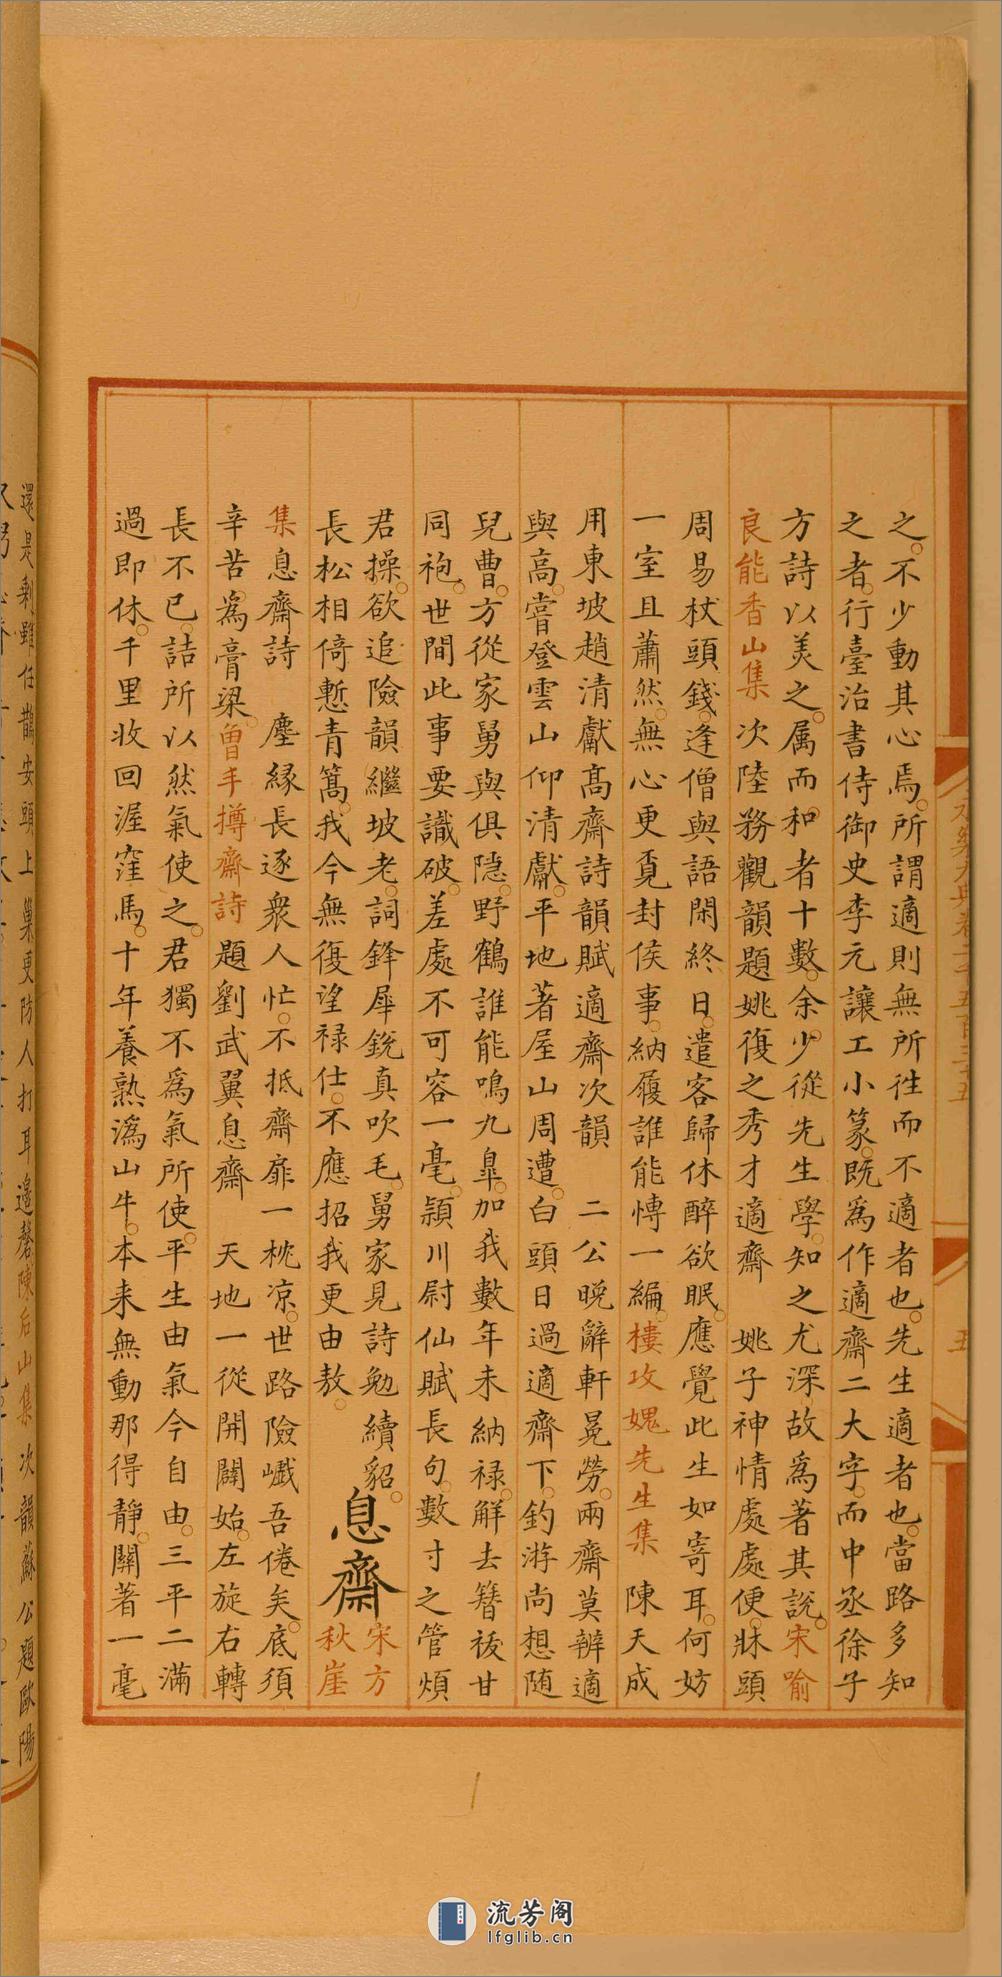 之。不少動其心焉。所謂適則無所徃而不適者也。先生適者也。當路多知
之者。行臺治書侍御史李元讓工小篆。既爲作適齋二大字。而中丞徐子
方詩以美之。属而和者十數。余少從先生學。知之尤深。故爲著其説。宋喻
良能香山集 次陸務觀韻題姚復之秀才適齋 姚子神情處處便。牀頭
周易杖頭錢。逢僧與語閑終日。遣客歸休醉欲眠。應覺此生如寄耳。何妨
一室且蕭然。無心更覔封侯事。納履誰能慱一編。樓攻媿先生集 陳天成
用東坡趙清獻髙齋詩韻賦適齋次韻 二公晚辭軒冕勞。兩齋莫辨適
與高。嘗登雲山仰清獻。平地著屋山周遭。白頭日過適齋下。釣游尚想随
兒曹。方從家舅與俱隠。野鶴誰能鳴九皐。加我數年未納禄。解去簪祓甘
同袍。世間此事要識破。差處不可容一毫。潁川尉仙賦長句。數寸之管煩
君操。欲追險韻繼坡老。詞鋒犀銳真吹毛。舅家見詩勉續貂。
長松相倚慙青篙。我今無復望禄仕。不應招我更由敖。
息齋
宋方
秋崖
集 息齋詩 塵縁長逐衆人忙。不抵齋扉一枕凉。世路險巇吾倦矣。底須
辛苦爲膏梁。曾丰撙齋詩 題劉武翼息齋 天地一從開闢始。左旋右轉
長不已。詰所以然氣使之。君獨不爲氣所使。平生由氣今自由。三平二滿
過即休。千里收回渥窪馬。十年養熟潙山牛。本来無動那得靜。關著一毫
還是剩。雖任鵲安頭上巢。更防人打耳邊磬。陳后山集 次韻蘇公題歐陽
永樂大典卷二千五百三十五
五
流芳阁
lfglib.cn